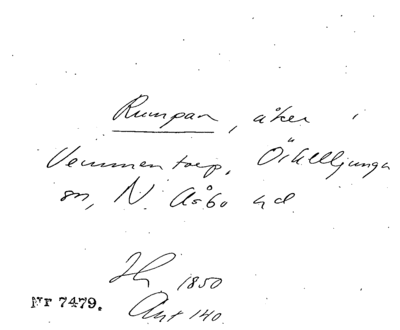 Rumpan, åker i
Vemmentorp, Örkelljunga
sn, N. Åsbo hd
Hs 1850
Akt 140.
Nr 7479.